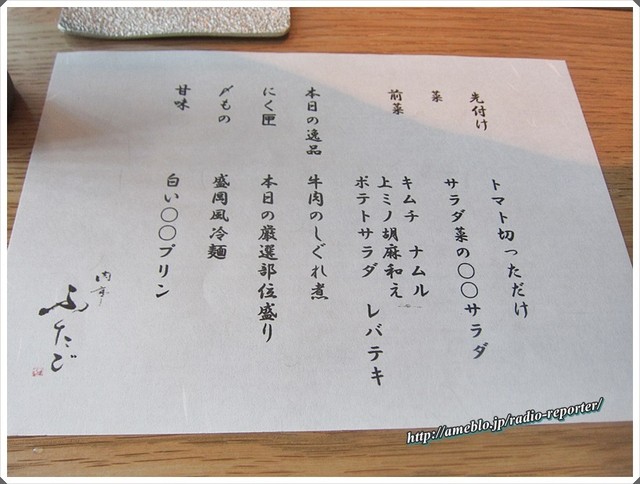 先付け　トマト切っただけ
菜　サラダ菜の〇〇サラダ
前菜　キムチ　ナムル
上ミノ胡麻和え
ポテトサラダ　レバテキ
本日の逸品　牛肉のしぐれ煮
にく匣　本日の厳選部位盛り
〆もの　盛岡風冷麺
甘味　白い〇〇プリン
ふたご
http://ameblo.jp/radio-reporter/